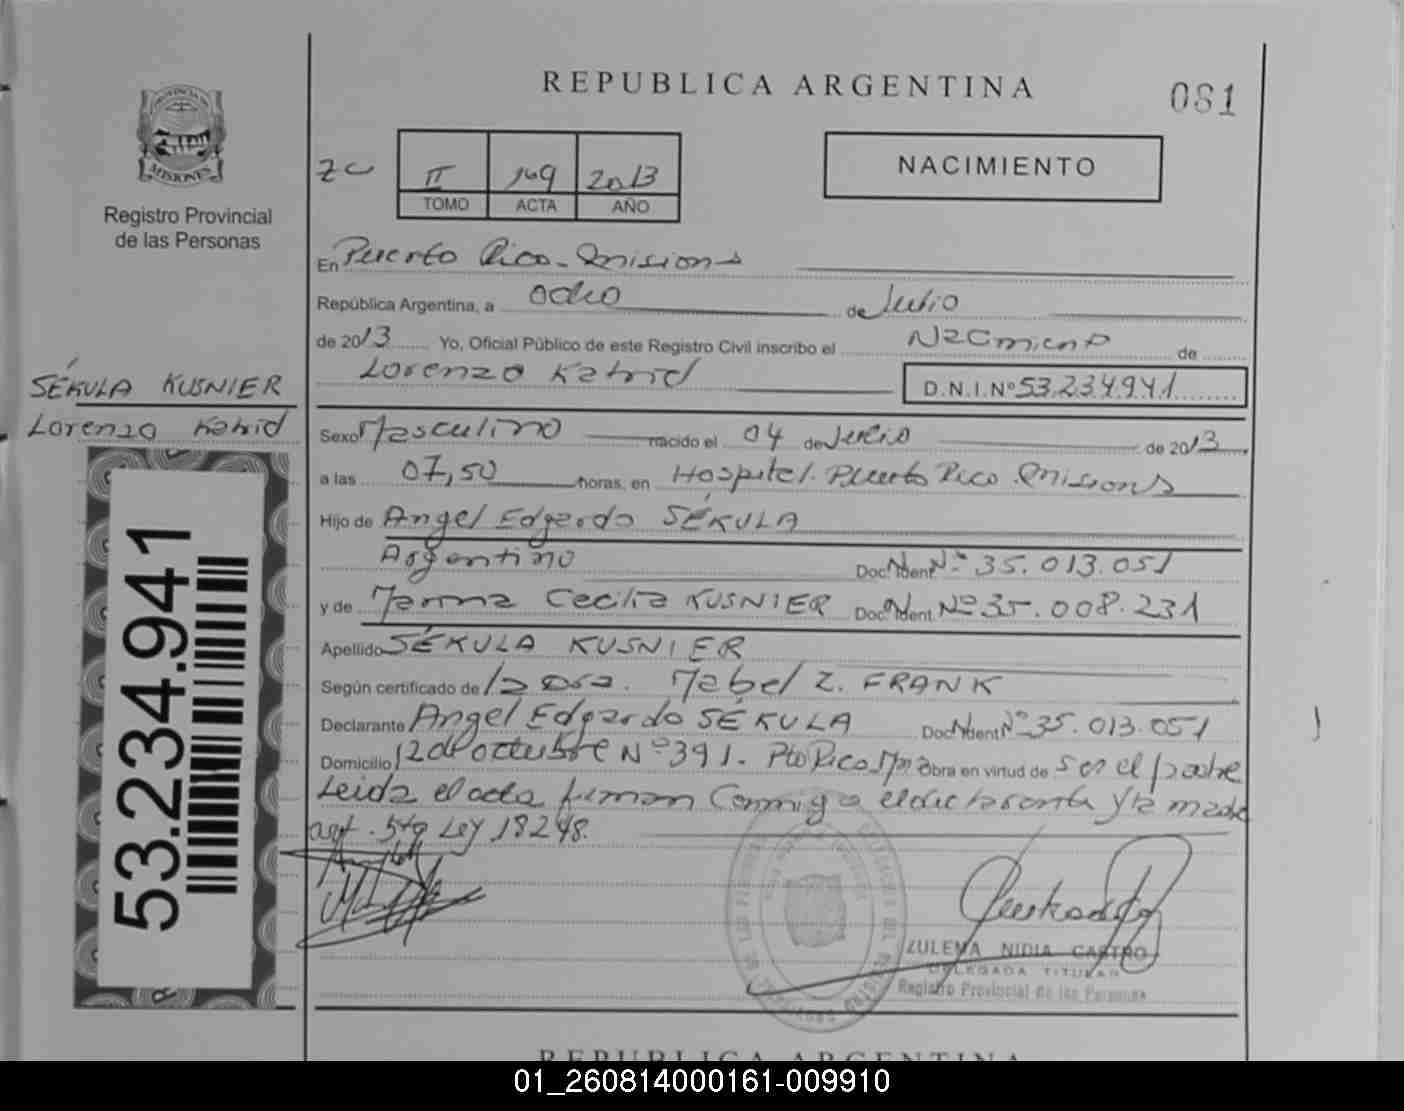 REPUBLICA ARGENTINA
081
PROVINCIA DE
MISIONES
Registro Provincial
de las Personas
II 169 2013
TOMO ACTA AÑO
NACIMIENTO
En Puerto Rico - Misiones
República Argentina, a ocho de Julio
de 2013 Yo, Oficial Público de este Registro Civil inscribo el Nacimiento de
Lorenzo Katriel D.N.I.Nº 53.234.941
SÉKULA KUSNIER
Lorenzo Katriel
Sexo Masculino nacido el 04 de Julio de 2013
a las 07,50 horas, en Hospital. Puerto Rico. Misiones
Hijo de Angel Edgardo SÉKULA
Argentino Doc. Ident. Nº 35.013.051
y de Marina Cecilia KUSNIER Doc. Ident. Nº 35.008.231
Apellido SÉKULA KUSNIER
Según certificado de la Dra. Mabel Z. FRANK
Declarante Angel Edgardo SÉKULA Doc. Ident. Nº 35.013.051
Domicilio 12 de octubre Nº 391. Pto Rico Mnes Obra en virtud de ser el padre
Leida el acta firman Conmigo el declarante y la madre
art. 5to Ley 18248.
53.234.941
ZULEMA NIDIA CASTRO
DELEGADA TITULAR
Registro Provincial de las Personas
REPUBLICA ARGENTINA
01_260814000161-009910